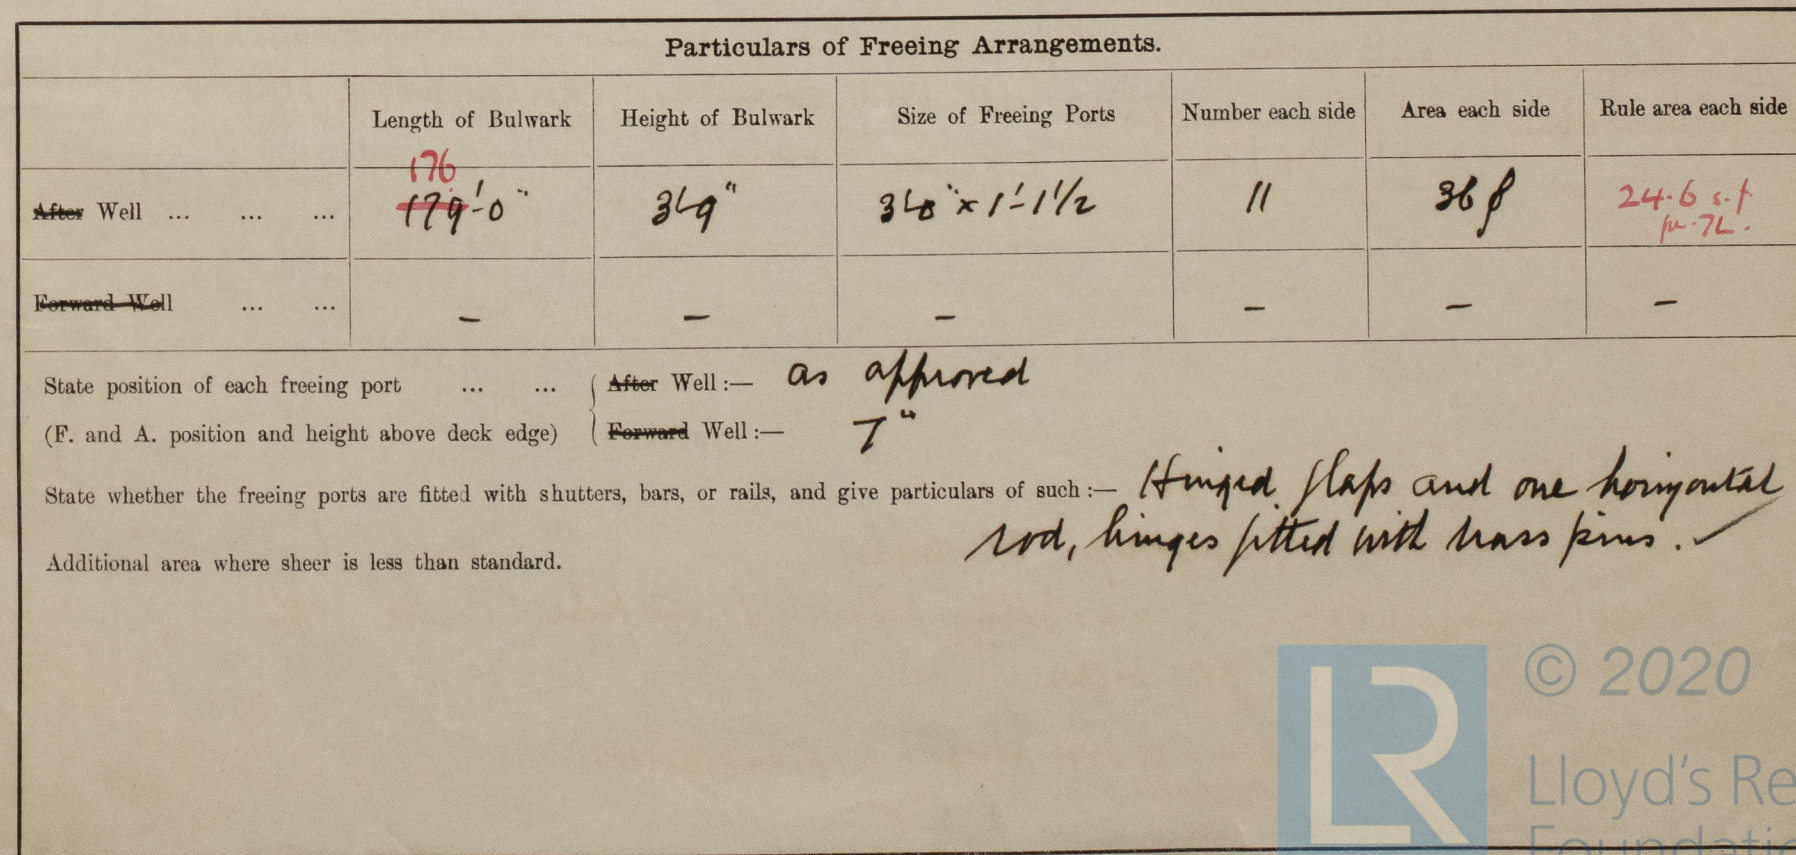 Particulars of Freeing Arrangements.
Length of Bulwark Height of Bulwark Size of Freeing Ports Number each side Area each side Rule area each side
176
After Well ... ... ... 179'-0" 3'-9" 3'-0" x 1'-1½ 11 36 24.6 s.f
Forward Well ... ... - - - - - -
State position of each freeing port ... ... After Well :— as approved
(F. and A. position and height above deck edge) Forward Well :— 7"
State whether the freeing ports are fitted with shutters, bars, or rails, and give particulars of such :— Hinged flaps and one horizontal
rod, hinges fitted with brass pins.
Additional area where sheer is less than standard.
LR
© 2020
Lloyd's Re
Foundatio